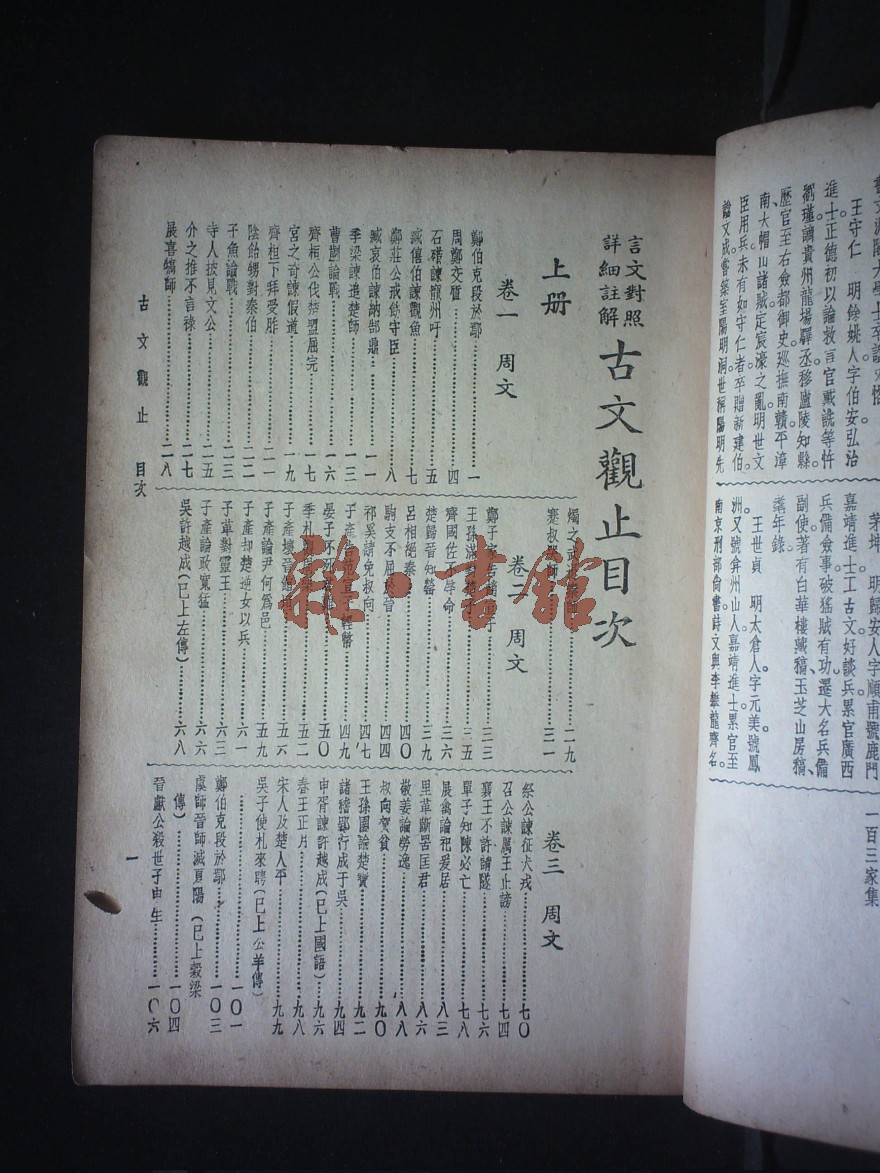 王守仁 明餘姚人字伯安弘治
進士。正德初以論救言官戴銑等忤
劉瑾謫貴州龍場驛丞移廬陵知縣
歷官至右僉都御史巡撫南贛平漳
南、大帽山諸賊定宸濠之亂明世文
臣用兵未有如守仁者。卒贈新建伯。
謚文成嘗築室陽明洞世稱陽明先
茅坤 明歸安人字順甫號鹿門
嘉靖進士。工古文好談兵累官廣西
兵備僉事破猺賊有功、遷大名兵備
副使著有白華樓藏稿、玉芝山房稿、
耄年錄。
王世貞 明太倉人字元美。號鳳
洲又號弇州山人嘉靖進士累官至
南京刑部尚書。詩文與李攀龍齊名。
一百三家集
言文對照
詳細註解
古文觀止目次
上册
卷一 周文
鄭伯克段於鄢……一
周鄭交質……四
石碏諫寵州吁……五
臧僖伯諫觀魚……七
鄭莊公戒飭守臣……八
臧哀伯諫納郜鼎……一一
季梁諫追楚師……一三
曹劌論戰……一六
齊桓公伐楚盟屈完……一七
宮之奇諫假道……一九
齊桓下拜受胙……二一
陰飴甥對秦伯……二二
子魚論戰……二三
寺人披見文公……二五
介之推不言祿……二七
展喜犒師……二八
燭之武……二九
蹇叔哭師……三一
卷二 周文
鄭子家告……三三
王孫滿……三五
齊國佐不辱命……三六
楚歸晉知罃……三九
呂相絕秦……四〇
駒支不屈於晉……四四
祁奚請免叔向……四七
子產……輕幣……四九
晏子不死……五〇
季札……五二
子產壞晉……五六
子產論尹何為邑……五九
子產却楚逆女以兵……六一
子革對靈王……六三
子產論政寬猛……六六
吳許越成(已上左傳)……六八
卷三 周文
祭公諫征犬戎……七〇
召公諫厲王止謗……七四
襄王不許請隧……七六
單子知陳必亡……七八
展禽論祀爰居……八三
里革斷罟匡君……八六
敬姜論勞逸……八八
叔向賀貧……九〇
王孫圉論楚寶……九二
諸稽郢行成于吳……九四
申胥諫許越成(已上國語)……九六
春王正月……九八
宋人及楚人平……九九
吳子使札來聘(已上公羊傳)
……一〇一
鄭伯克段於鄢……一〇三
虞師晉師滅夏陽(已上穀梁
傳)……一〇四
晉獻公殺世子申生……一〇六
古文觀止 目次
一
雜·書館